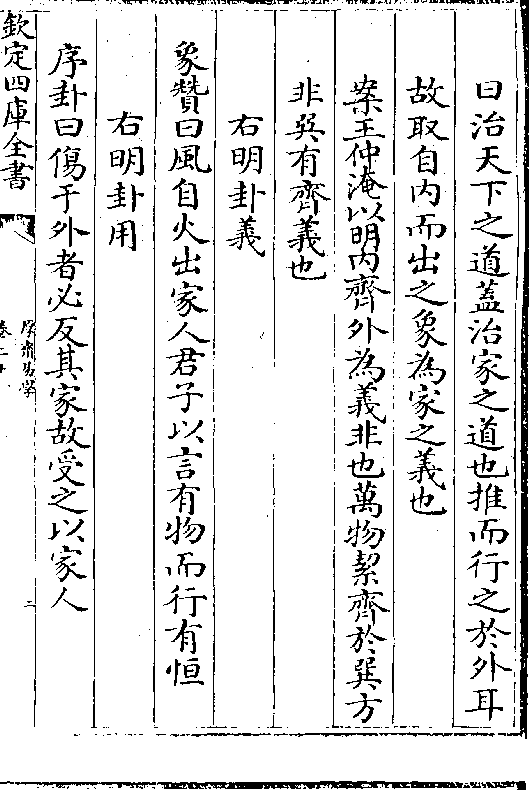 曰治天下之道蓋治家之道也推而行之於外耳
故取自内而出之象為家之義也
案王仲淹以明内齊外為義非也萬物絜齊於巽方
非巽有齊義也
右明卦義
象贊曰風自火出家人君子以言有物而行有恒
右明卦用
序卦曰傷于外者必反其家故受之以家人
欽定四庫全書
厚齋易學
卷二十
二